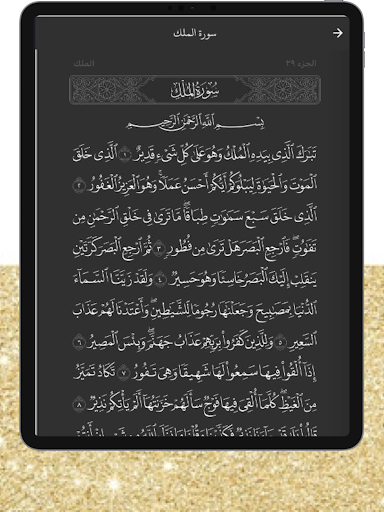 سورة الملك
الجزء ٢٩
الملك
سُورَةُ المُلْكِ
بِسْمِ ٱللَّهِ ٱلرَّحْمَٰنِ ٱلرَّحِيمِ
تَبَٰرَكَ ٱلَّذِى بِيَدِهِ ٱلْمُلْكُ وَهُوَ عَلَىٰ كُلِّ شَىْءٍ قَدِيرٌ ١ ٱلَّذِى خَلَقَ
ٱلْمَوْتَ وَٱلْحَيَوٰةَ لِيَبْلُوَكُمْ أَيُّكُمْ أَحْسَنُ عَمَلًا ۚ وَهُوَ ٱلْعَزِيزُ ٱلْغَفُورُ ٢
ٱلَّذِى خَلَقَ سَبْعَ سَمَٰوَٰتٍ طِبَاقًا ۖ مَّا تَرَىٰ فِى خَلْقِ ٱلرَّحْمَٰنِ مِن
تَفَٰوُتٍ ۖ فَٱرْجِعِ ٱلْبَصَرَ هَلْ تَرَىٰ مِن فُطُورٍ ٣ ثُمَّ ٱرْجِعِ ٱلْبَصَرَ كَرَّتَيْنِ
يَنقَلِبْ إِلَيْكَ ٱلْبَصَرُ خَاسِئًا وَهُوَ حَسِيرٌ ٤ وَلَقَدْ زَيَّنَّا ٱلسَّمَآءَ
ٱلدُّنْيَا بِمَصَٰبِيحَ وَجَعَلْنَٰهَا رُجُومًا لِّلشَّيَٰطِينِ ۖ وَأَعْتَدْنَا لَهُمْ عَذَابَ
ٱلسَّعِيرِ ٥ وَلِلَّذِينَ كَفَرُوا۟ بِرَبِّهِمْ عَذَابُ جَهَنَّمَ ۖ وَبِئْسَ ٱلْمَصِيرُ ٦
إِذَآ أُلْقُوا۟ فِيهَا سَمِعُوا۟ لَهَا شَهِيقًا وَهِىَ تَفُورُ ٧ تَكَادُ تَمَيَّزُ
مِنَ ٱلْغَيْظِ ۖ كُلَّمَآ أُلْقِىَ فِيهَا فَوْجٌ سَأَلَهُمْ خَزَنَتُهَآ أَلَمْ يَأْتِكُمْ نَذِيرٌ ٨
قَالُوا۟ بَلَىٰ قَدْ جَآءَنَا نَذِيرٌ فَكَذَّبْنَا وَقُلْنَا مَا نَزَّلَ ٱللَّهُ مِن شَىْءٍ إِنْ أَنتُمْ